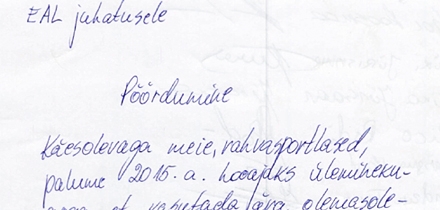 EAL juhatusele
Pöördumine
Käesolevaga meie, rahvasportlased,
palume 2015. a. hooajaks ülemineku-
et kasutada ära olemasole-